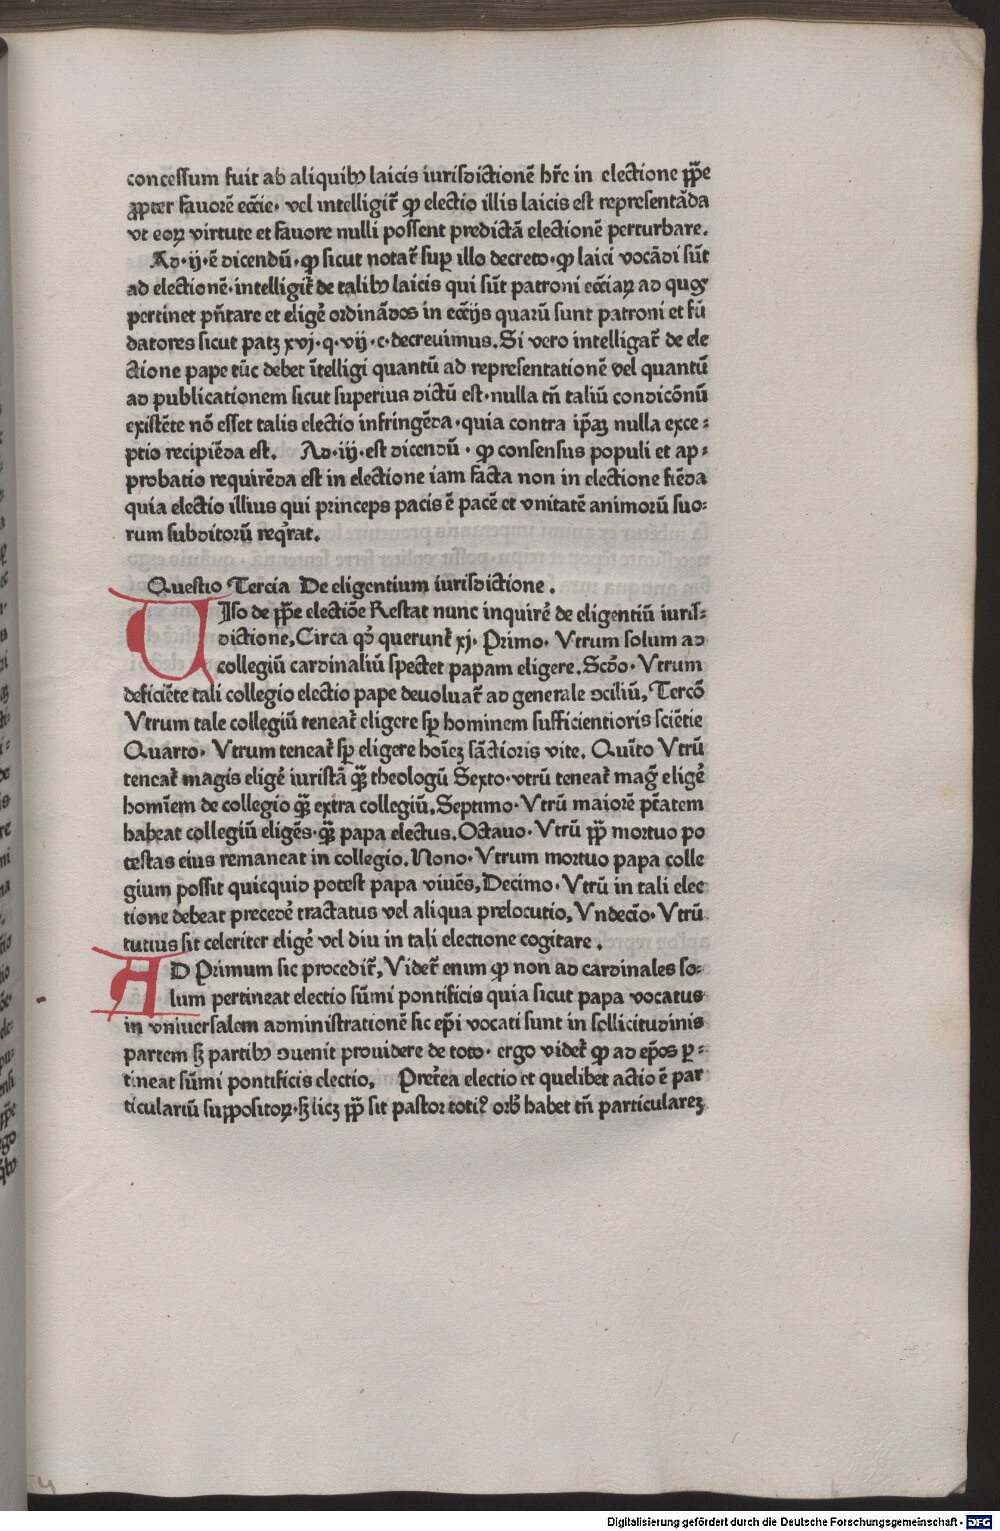 concessum fuit ab aliquibꝫ laicis iurisdictionē hr̄e in electione ꝑp̄e
ꝓpter fauorē eccīe· vel intelligit̄ ꝙ electio illis laicis est representāda
vt eoꝝ virtute et fauore nulli possent predictā electionē perturbare.
Ad·ij·ē dicendū·ꝙ sicut notat̄ suꝑ illo decreto·ꝙ laici vocādi sūt
ad electionē·intelligit̄ de talibꝫ laicis qui sūt patroni ecciaꝝ ad quos
pertinet pn̄tare et eligē ordinādos in eccijs quarū sunt patroni et fū
datores sicut patꝫ xvj·q·vij·c·decreuimus. Si vero intelligat̄ de ele
ctione pape tūc debet ītelligi quantū ad representationē vel quantū
ad publicationem sicut superius dictū est·nulla tn̄ taliū condicōnū
existēte nō esset talis electio infringēda·quia contra ip̄aꝫ nulla exce⸗
ptio recipiēda est. Ad·iij·est dicendū·ꝙ consensus populi et ap⸗
probatio requirēda est in electione iam facta non in electione fiēda
quia electio illius qui princeps pacis ē pacē et vnitatē animorū suo⸗
rum subditorū req̄rat.
Questio Tercia De eligentium iurisdictione.
VJso de pp̄e electiōe Restat nunc inquirē de eligentiū iuris⸗
dictione, Circa qd̄ querunt̄ xj· Primo· Vtrum solum ad
collegiū cardinaliū spectet papam eligere. Scd̄o· Vtrum
deficiēte tali collegio electio pape deuoluat̄ ad generale ↄciliū, Tercō
Vtrum tale collegiū teneat̄ eligere sꝑ hominem sufficientioris sciētie
Quarto· Vtrum teneat̄ sꝑ eligere hoīeꝫ sāctioris vite. Quīto Vtrū
teneat̄ magis eligē iuristā qꝫ̄ theologū Sexto·vtrū teneat̄ maḡ eligē
homīem de collegio qꝫ̄ extra collegiū. Septimo·Vtrū maiorē pt̄atem
habeat collegiū eligēs·qꝫ̄ papa electus. Octauo·Vtrū pp̄ mortuo po
testas eius remaneat in collegio. Nono·Vtrum mortuo papa colle
gium possit quicquid potest papa viuēs, Decimo·Vtrū in tali elec
tione debeat precedē tractatus vel aliqua prelocutio, Vndecīo·Vtrū
tutius sit celeriter eligē vel diu in tali electione cogitare.
AD Primum sic procedit̄, Videt̄ enim ꝙ non ad cardinales so⸗
lum pertineat electio sūmi pontificis quia sicut papa vocatus
in vniuersalem administrationē sic ep̄i vocati sunt in sollicitudinis
partem sꝫ partibꝫ ↄuenit prouidere de toto· ergo videt̄ ꝙ ad ep̄os ꝑ⸗
tineat sūmi pontificis electio, Preťea electio et quelibet actio ē par
ticulariū suppositoꝝ·sꝫ licꝫ pp̄ sit pastor toti⁹ orb̄ habet tn̄ particulareꝫ
Digitalisierung gefördert durch die Deutsche Forschungsgemeinschaft - DFG